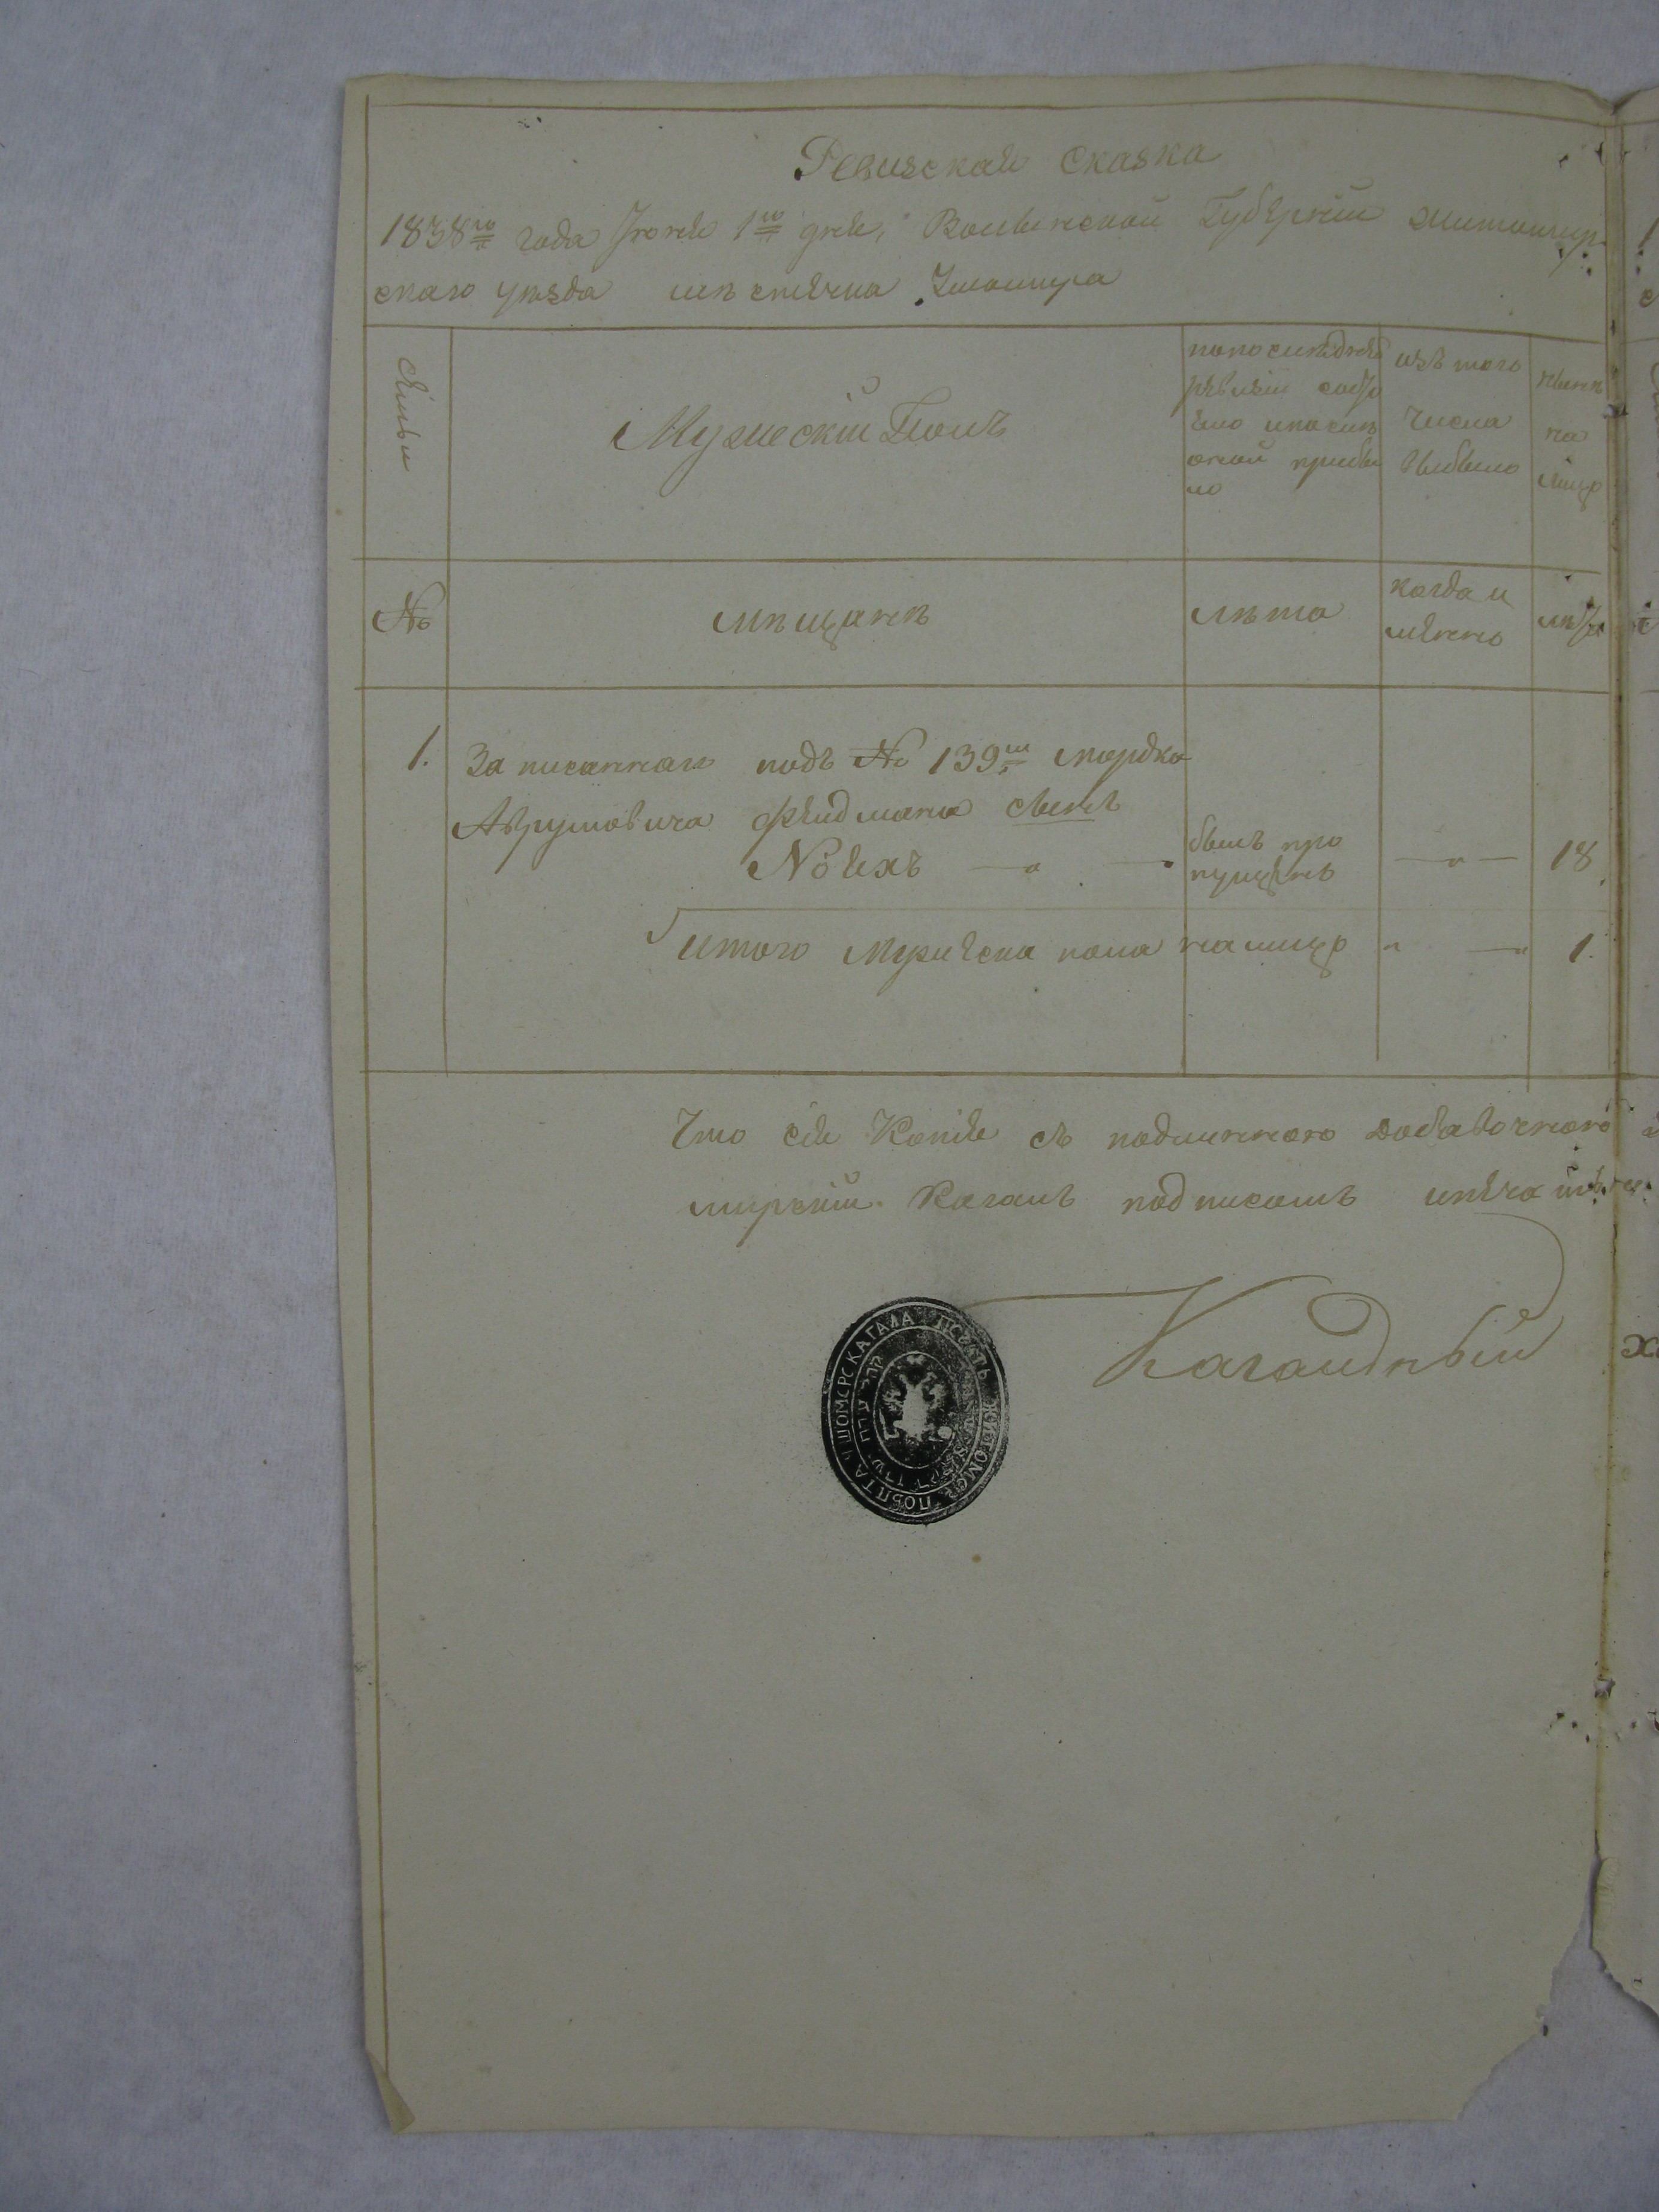 Ревизская Сказка
1838го года Іюня 1го дня, Волынской Губерніи Житомир
скаго уезда местечка Чмомира
Семьи
Мужескій Полъ
по последней
ревизіи состо
яло и после
оной прибы
ло
изъ того
числа
выбыло
ныне
на
лицо
№
мещане
лета
когда и
менно
лета
1. Записаннаго подъ № 139м Мордка
Аврумовича Фельдмана сынъ
Ноехъ былъ про
пущенъ 18
Итого Мужеска пола на лицо 1.
Что сія Копія съ подлинного добавочного
мирскій Кагалъ подписомъ и печатью
Кагальный